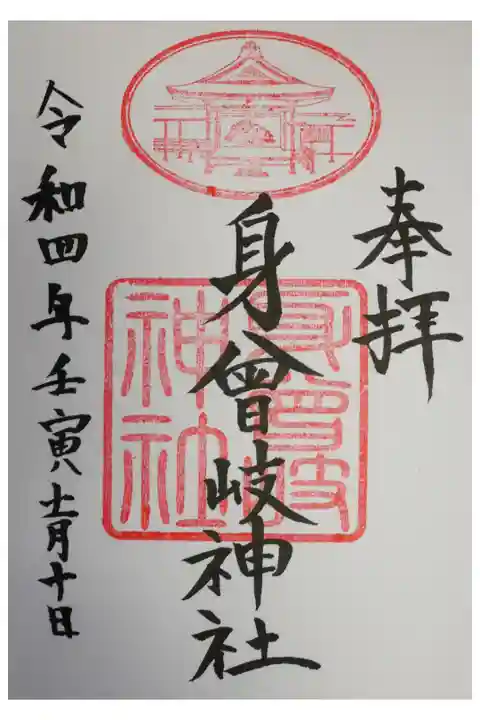 奉拝
身曾岐神社
令和四年壬寅十一月十日
身曾岐
神社